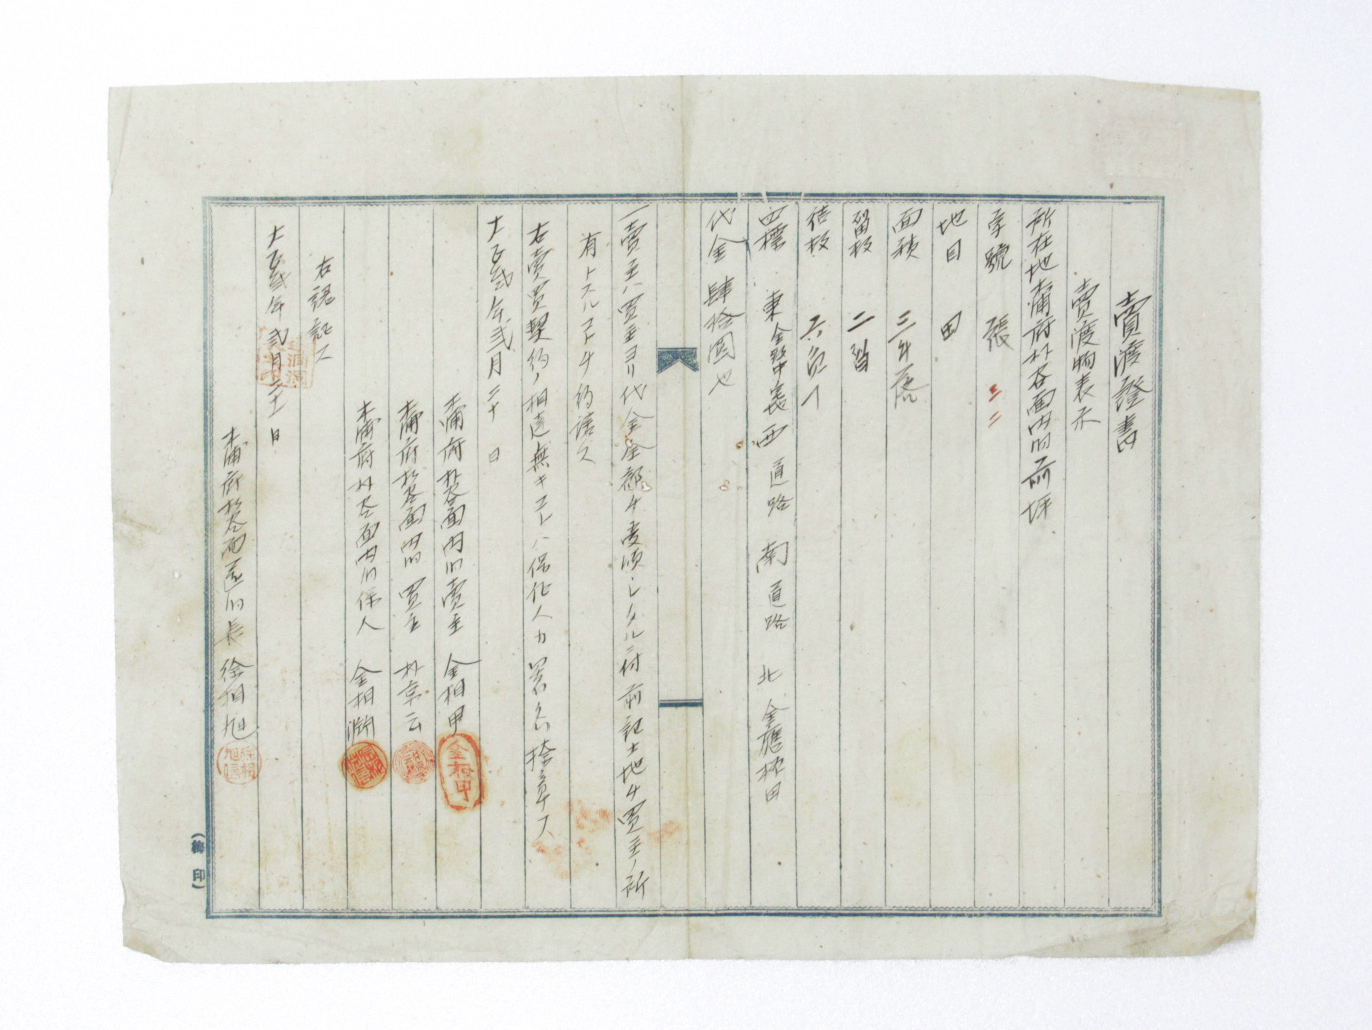 賣渡證書
賣渡物表示
所在地 木浦府朴谷面內洞前坪
字號 張 三二
地目 田
面積 三斗落
畓數 二畓
結數 六負
四標 東 金 西 道路 南 道路 北 金應 田
代金 肆拾圓也
一賣主ハ買主ヨリ代金全部ヲ受領シタルニ付前記土地ヲ買主ノ所
有トスルコトヲ約諾ス
右賣買契約ノ相違無キコトハ保証人カ署名捺章ス
大正貳年貳月二十 日
木浦府朴谷面內洞 賣主 金相甲
木浦府朴谷面內洞 買主 朴京云
木浦府朴谷面內洞 保人 金相淵
右認証ス
大正貳年貳月二十 日
木浦府朴谷面 洞長 徐相旭
金相甲